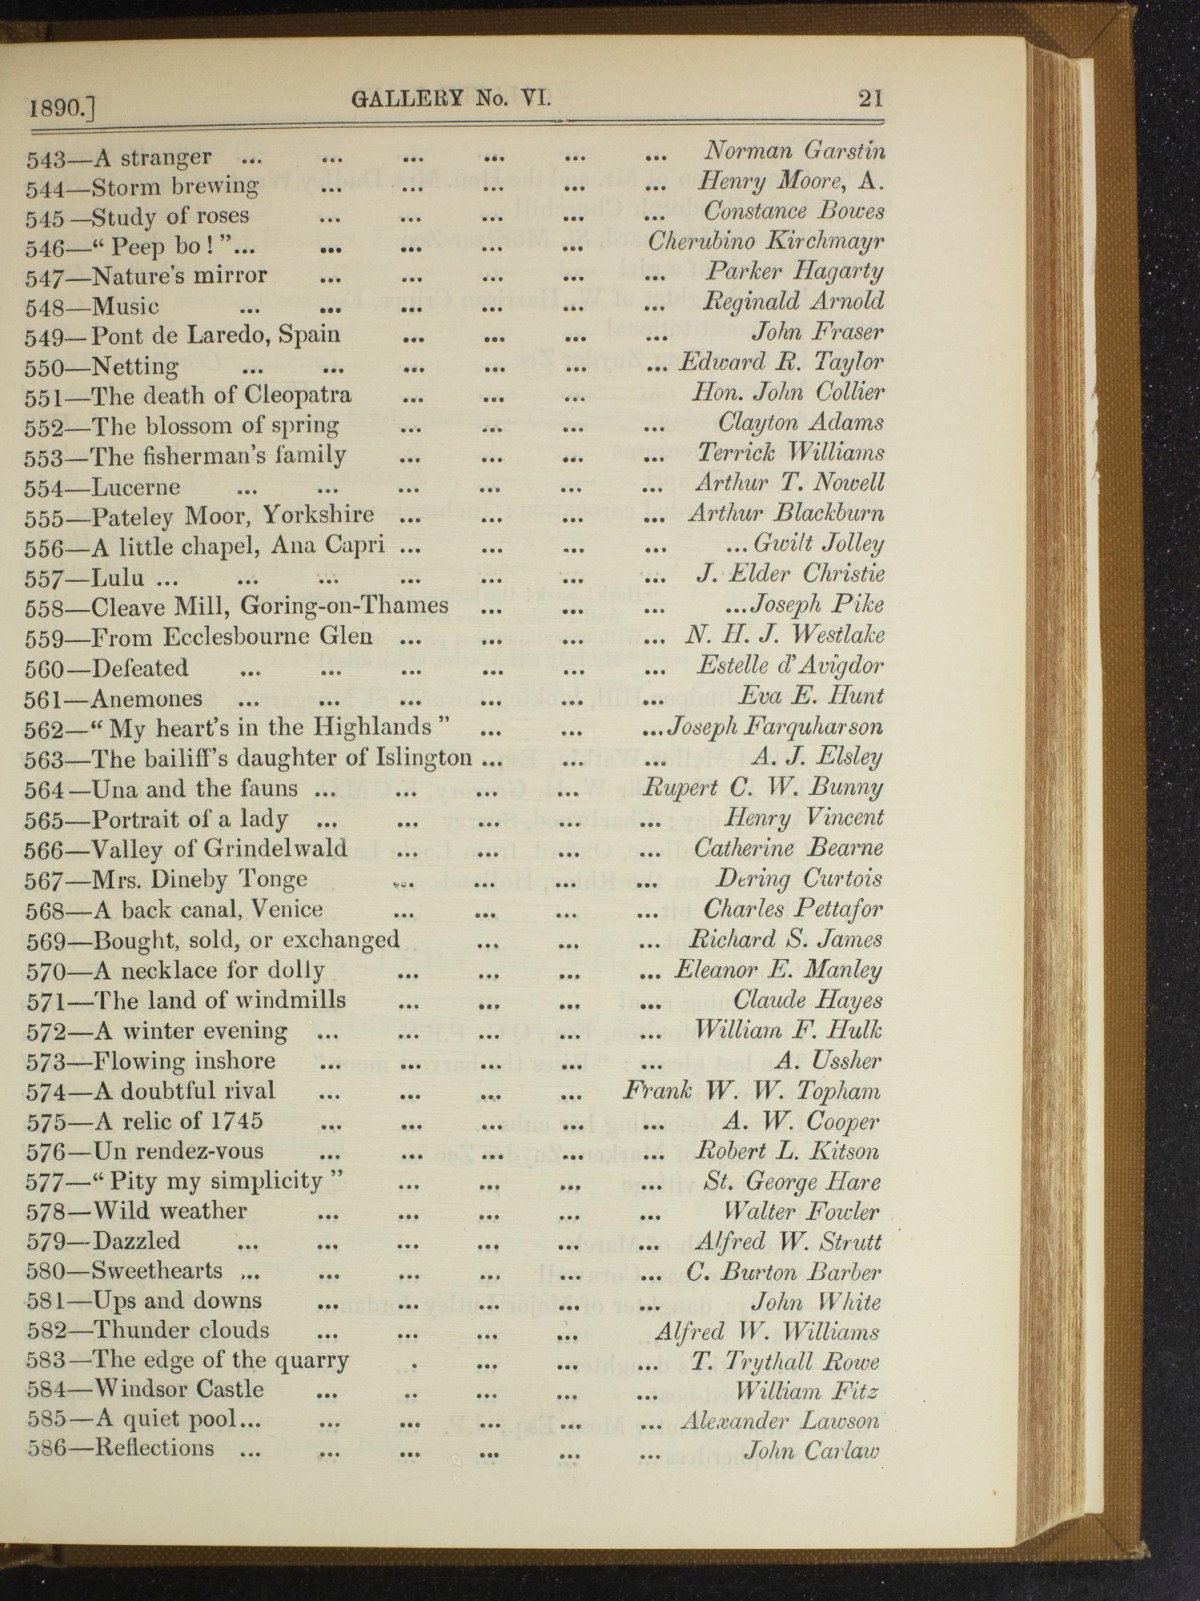 1890.] GALLERY No. VI. 21
543—A stranger ... ... ... ... ... ... Norman Garstin
544—Storm brewing ... ... ... ... ... Henry Moore, A.
545—Study of roses ... ... ... ... ... Constance Bowes
546—“ Peep bo ! ”... ... ... ... ... Cherubino Kirchmayr
547—Nature's mirror ... ... ... ... ... Parker Hagarty
548—Music ... ... ... ... ... ... Reginald Arnold
549—Pont de Laredo, Spain ... ... ... ... John Fraser
550—Netting ... ... ... ... ... ... Edward R. Taylor
551—The death of Cleopatra ... ... ... Hon. John Collier
552—The blossom of spring ... ... ... ... Clayton Adams
553—The fisherman's family ... ... ... ... Terrick Williams
554—Lucerne ... ... ... ... ... ... Arthur T. Nowell
555—Pateley Moor, Yorkshire ... ... ... ... Arthur Blackburn
556—A little chapel, Ana Capri ... ... ... ... ... Gwilt Jolley
557—Lulu ... ... ... ... ... ... ... J. Elder Christie
558—Cleave Mill, Goring-on-Thames ... ... ... ...Joseph Pike
559—From Ecclesbourne Glen ... ... ... ... N. H. J. Westlake
560—Defeated ... ... ... ... ... ... Estelle d'Avigdor
561—Anemones ... ... ... ... ... ... Eva E. Hunt
562—“ My heart's in the Highlands ” ... ... ...Joseph Farquharson
563—The bailiff's daughter of Islington ... ... ... A. J. Elsley
564—Una and the fauns ... ... ... ... Rupert C. W. Bunny
565—Portrait of a lady ... ... ... ... ... Henry Vincent
566—Valley of Grindelwald ... ... ... ... Catherine Bearne
567—Mrs. Dineby Tonge ... ... ... ... Dering Curtois
568—A back canal, Venice ... ... ... ... Charles Pettafor
569—Bought, sold, or exchanged ... ... ... Richard S. James
570—A necklace for dolly ... ... ... ... Eleanor E. Manley
571—The land of windmills ... ... ... ... Claude Hayes
572—A winter evening ... ... ... ... ... William F. Hulk
573—Flowing inshore ... ... ... ... ... A. Ussher
574—A doubtful rival ... ... ... ... Frank W. W. Topham
575—A relic of 1745 ... ... ... ... ... A. W. Cooper
576—Un rendez-vous ... ... ... ... ... Robert L. Kitson
577—“ Pity my simplicity ” ... ... ... ... St. George Hare
578—Wild weather ... ... ... ... ... Walter Fowler
579—Dazzled ... ... ... ... ... ... Alfred W. Strutt
580—Sweethearts ... ... ... ... ... ... C. Burton Barber
581—Ups and downs ... ... ... ... ... John White
582—Thunder clouds ... ... ... ... Alfred W. Williams
583—The edge of the quarry . ... ... ... T. Trythall Rowe
584—Windsor Castle ... .. ... ... ... William Fitz
585—A quiet pool... ... ... ... ... ... Alexander Lawson
586—Reflections ... ... ... ... ... ... John Carlaw